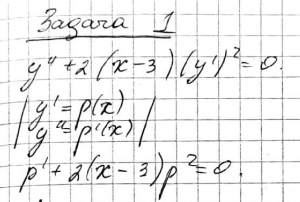 Задача 1
y'' + 2(x-3)(y')² = 0.
| y' = p(x)
y'' = p'(x) |
p' + 2(x-3)p² = 0.